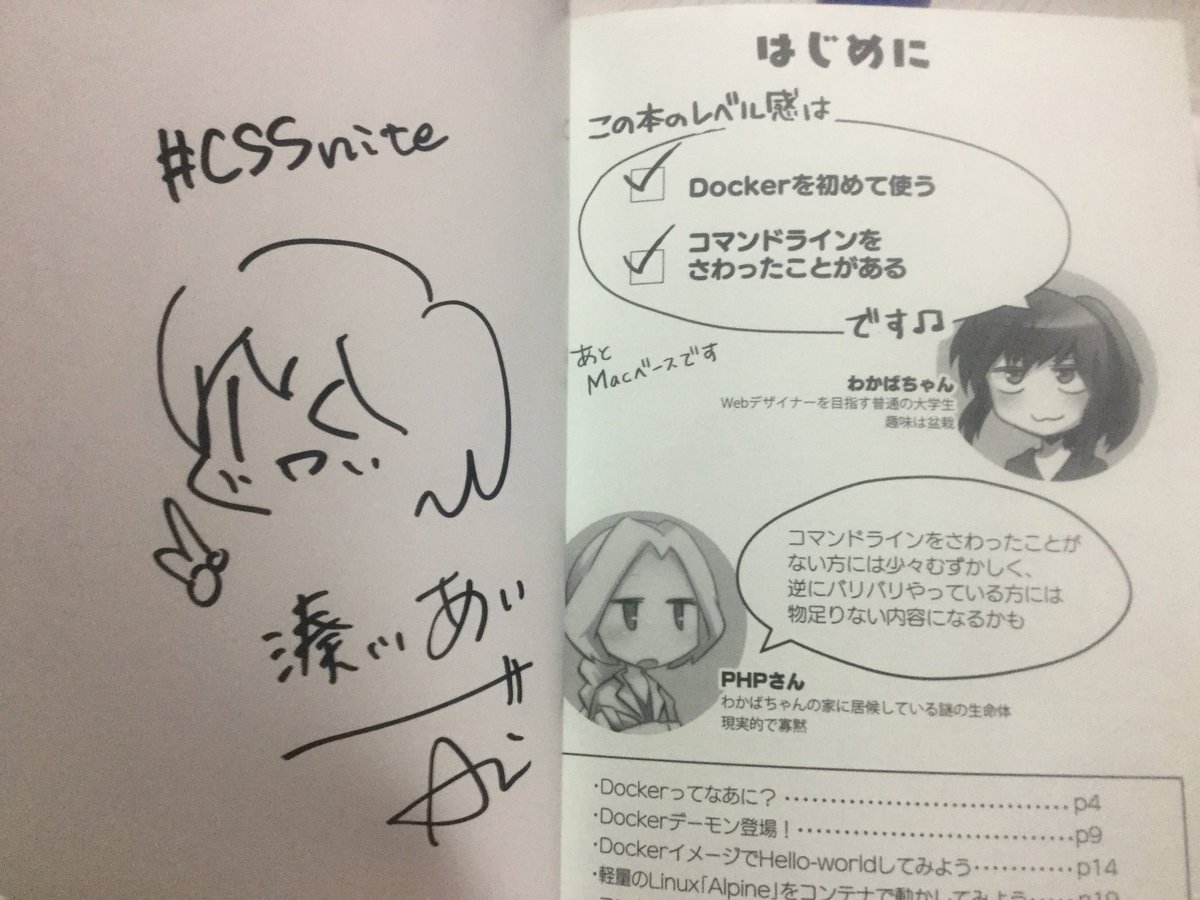 #CSSnite
湊川あい
Ai
はじめに
この本のレベル感は
Dockerを初めて使う
コマンドラインを
さわったことがある
です♫
あと
Macベースです
わかばちゃん
Webデザイナーを目指す普通の大学生
趣味は盆栽
コマンドラインをさわったことが
ない方には少々むずかしく、
逆にバリバリやっている方には
物足りない内容になるかも
PHPさん
わかばちゃんの家に居候している謎の生命体
現実的で寡黙
・Dockerってなあに？ ・・・・・・・・・・・・・・・・・・・・・・・・・・・・・・ p4
・Dockerデーモン登場！ ・・・・・・・・・・・・・・・・・・・・・・・・・・・・・ p9
・DockerイメージでHello-worldしてみよう ・・・・・・・・・・・ p14
・軽量のLinux「Alpine」をコンテナで動かしてみよう ・・・・・ p19